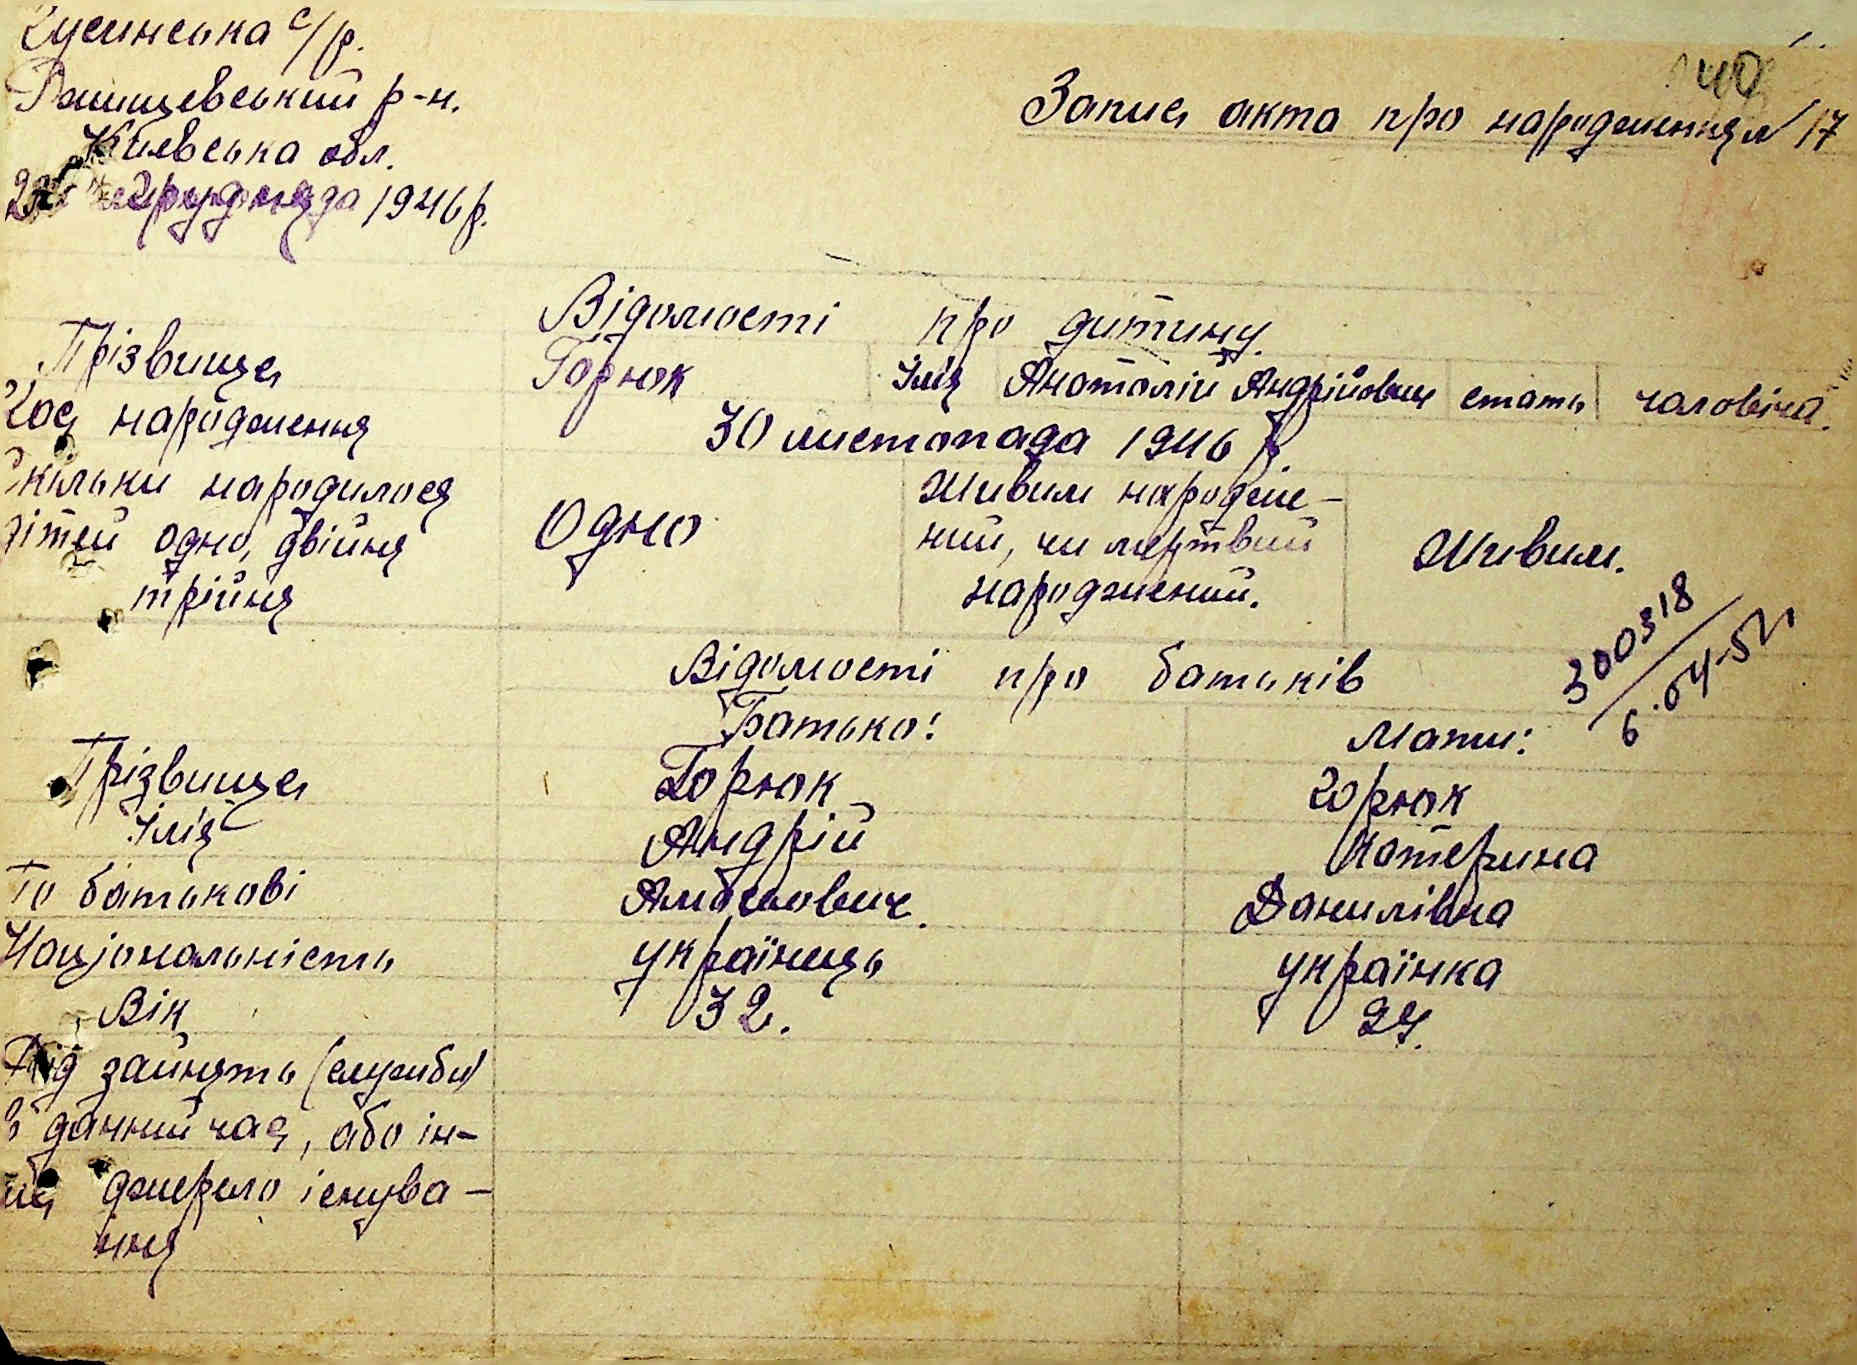 с/р.
р-н.
Київська обл.
грудня 1946 р.
40
Запис акта про народження № 17
Відомості про дитину.
Прізвище Горюк Імя Анатолій Андрійович стать чоловіча.
Час народження 30 листопада 1946 р
Скільки народилося
дітей одно, двійня
трійня
Одно
Живим народже-
ний, чи мертвий
народжений.
Живим.
300318
6.04-52
Відомості про батьків
Батько: Мати:
Прізвище Горюк Горюк
Імя Андрій Катерина
По батькові Данилівна
Національність українець українка
Вік 32.
Рід зайнять (служби)
в данний час, або ін-
ше джерело існува-
ння